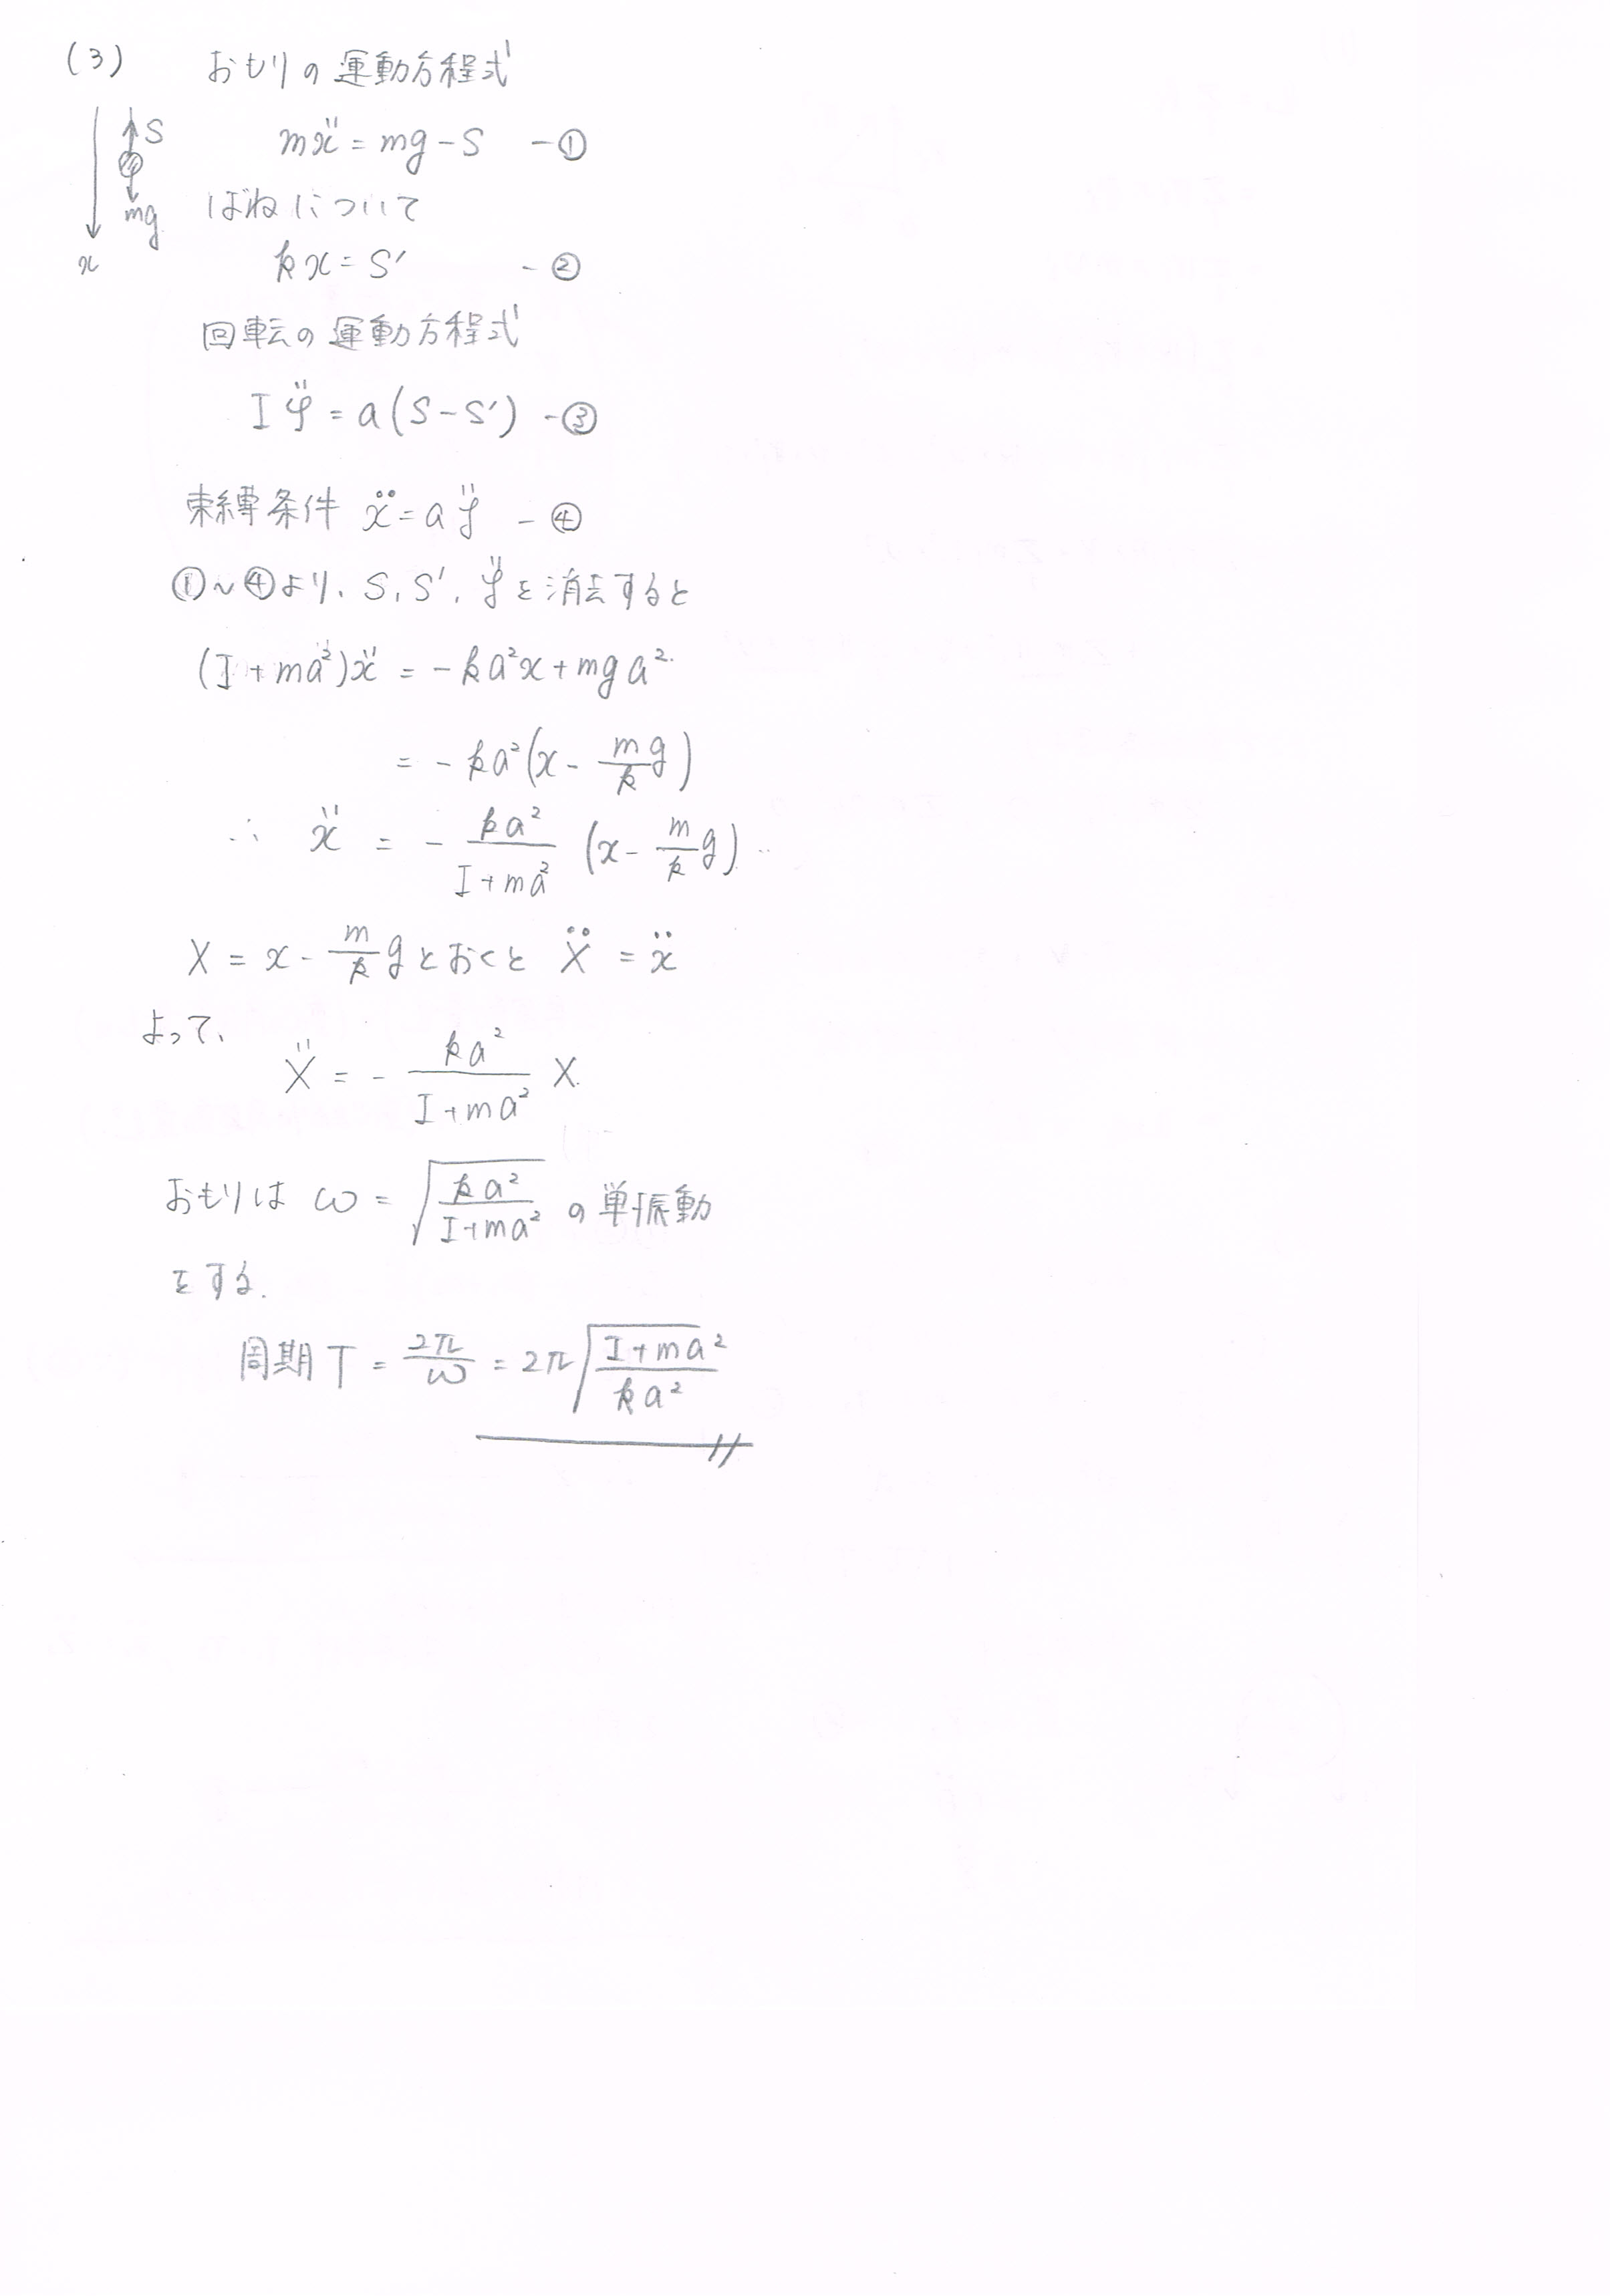 (3) おもりの運動方程式
S
mg
x
mẍ = mg - S -①
ばねについて
kx = S' -②
回転の運動方程式
Iφ̈ = a(S-S') -③
束縛条件 ẍ = aφ̈ -④
①~④より、S, S', φ̈を消去すると
(I+ma²)ẍ = -ka²x + mga²
= -ka²(x - m/k g)
∴ ẍ = - ka²/(I+ma²) (x - m/k g)
X = x - m/k g とおくと Ẍ = ẍ
よって、
Ẍ = - ka²/(I+ma²) X
おもりは ω = √(ka²/(I+ma²)) の単振動
をする.
周期 T = 2π/ω = 2π√((I+ma²)/(ka²))